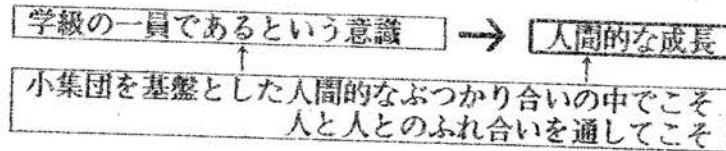 学級の一員であるという意識 → 人間的な成長
小集団を基盤とした人間的なぶつかり合いの中でこそ
人と人とのふれ合いを通してこそ